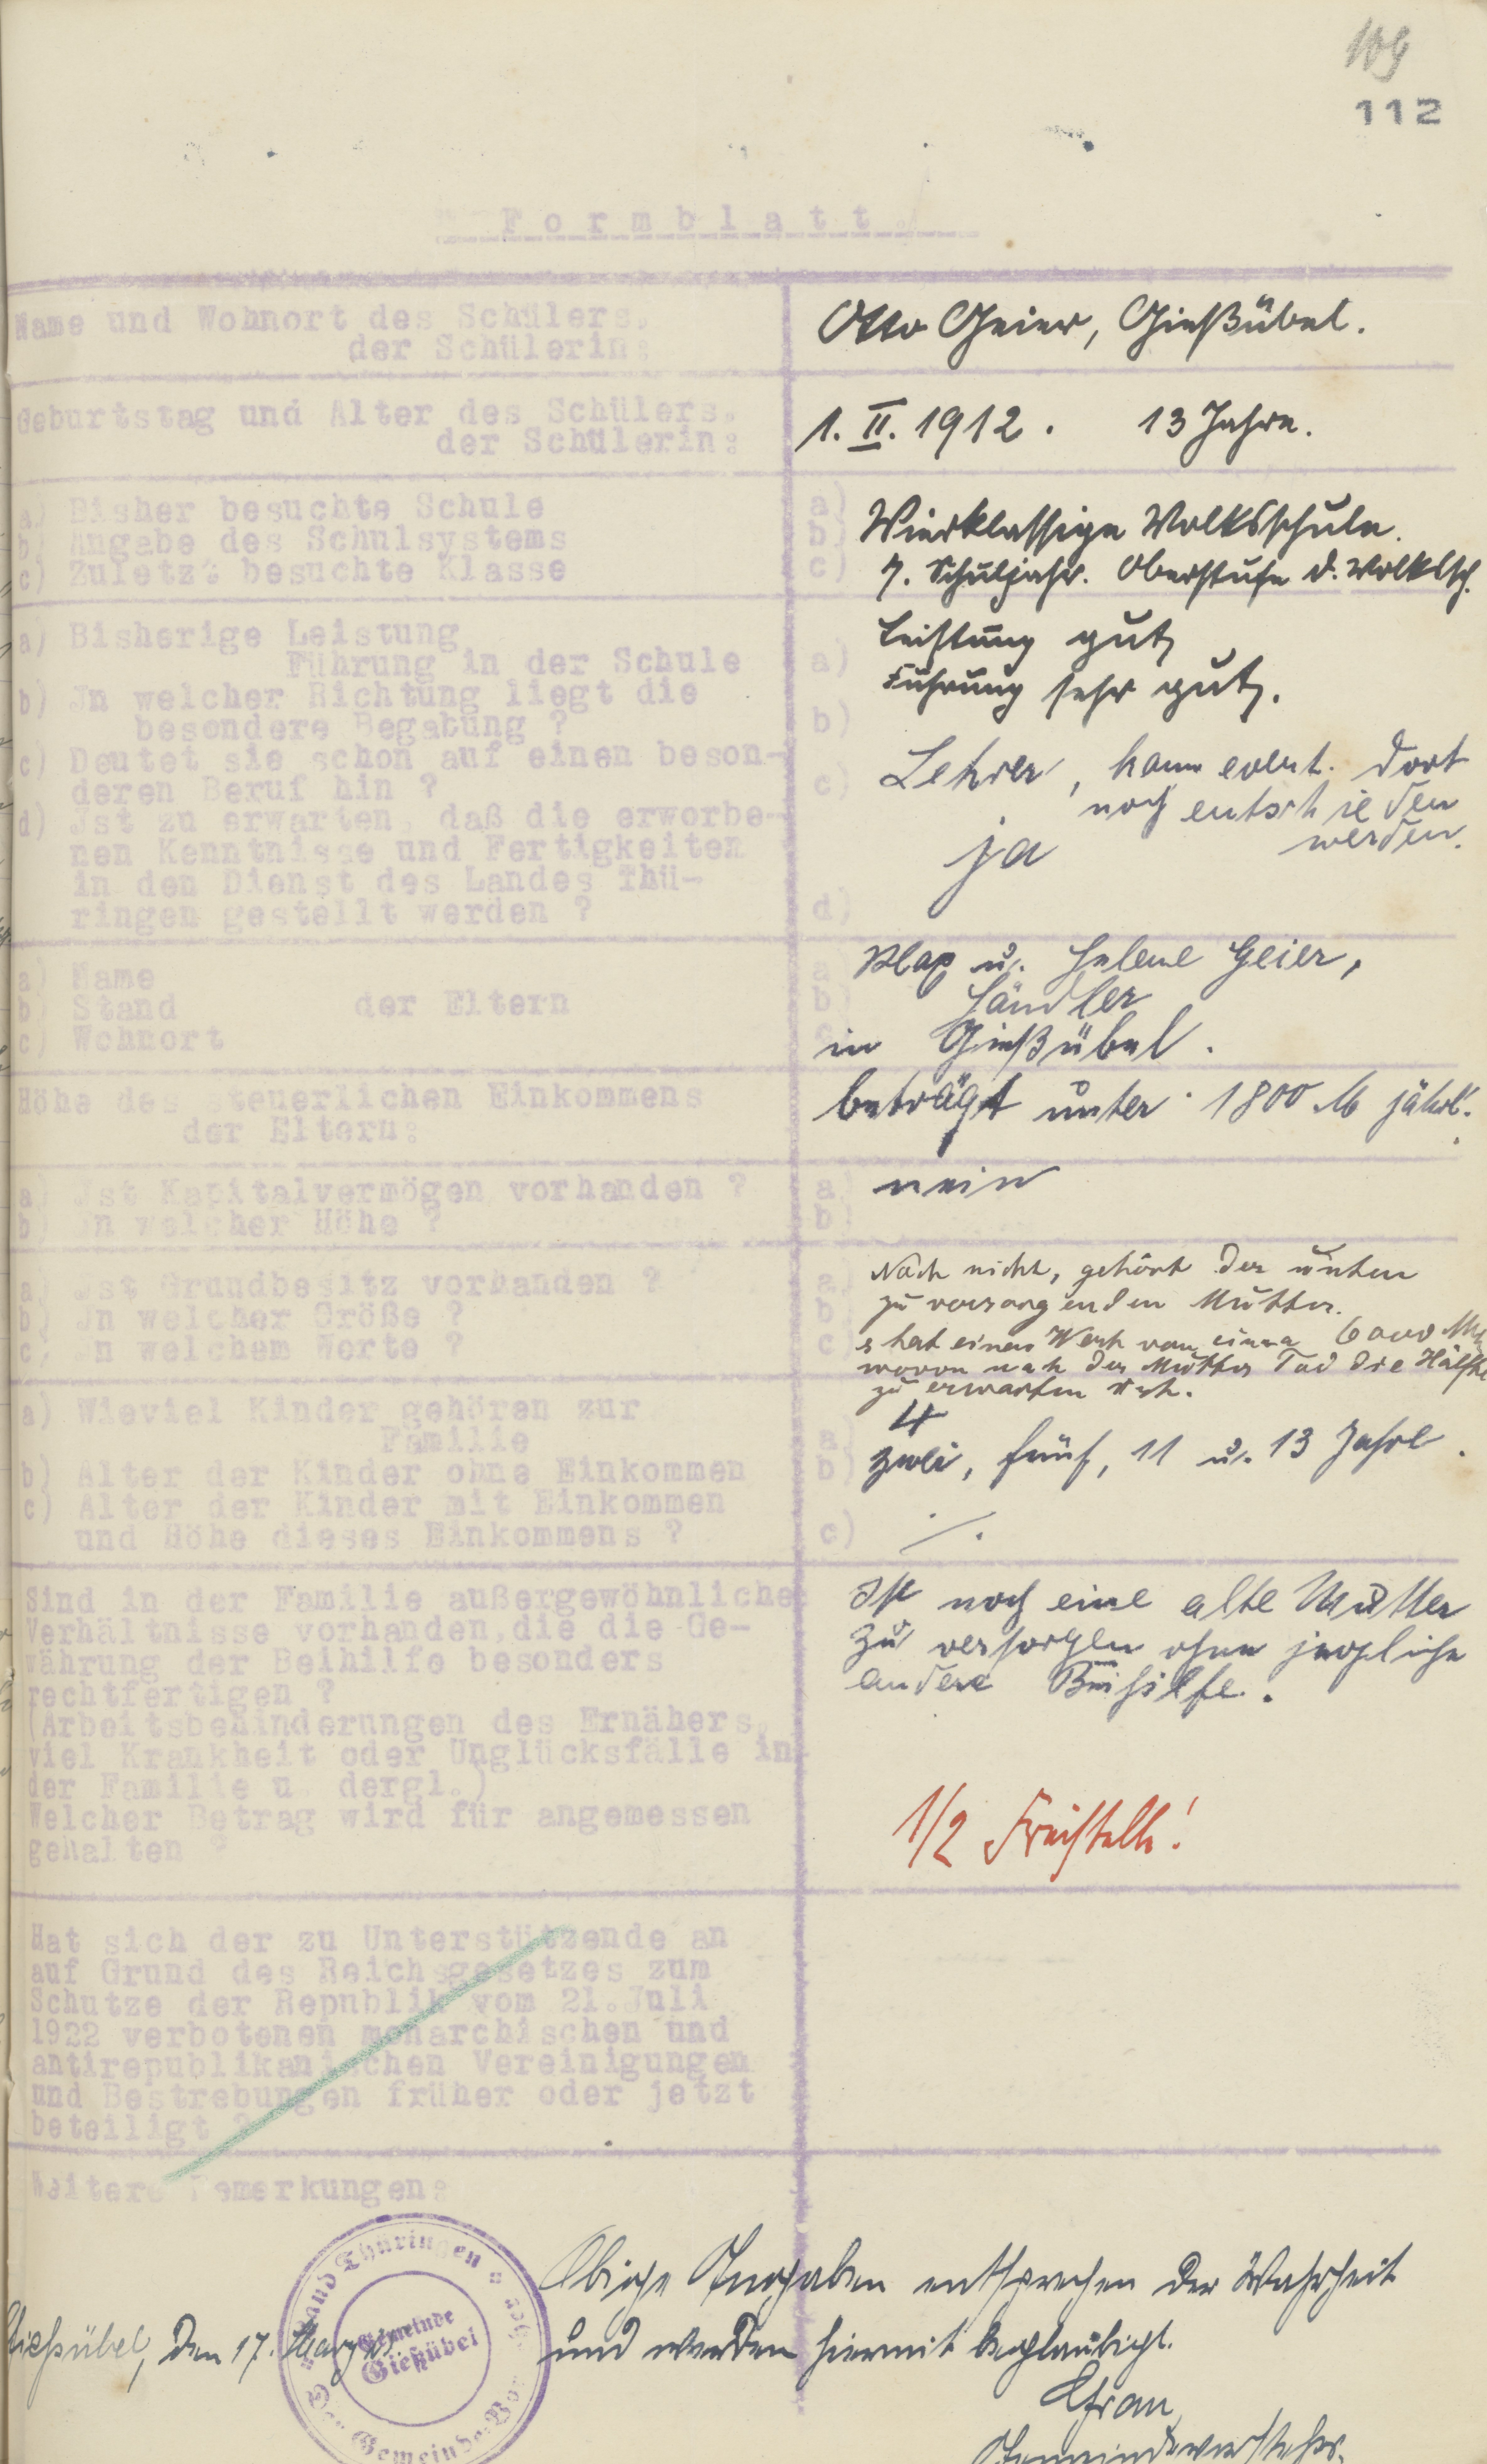 109
112
Formblatt.
Name und Wohnort des Schülers,
der Schülerin:
Otto Geier, Gießübel.
Geburtstag und Alter des Schülers,
der Schülerin:
1. II. 1912. 13 Jahre.
a) Bisher besuchte Schule
b) Angabe des Schulsystems
c) Zuletzt besuchte Klasse
a)
b)
c)
Vierklassige Volksschule.
7. Schuljahr. Oberstufe d. Volkssch.
a) Bisherige Leistung
Führung in der Schule
b) Jn welcher Richtung liegt die
besondere Begabung ?
c) Deutet sie schon auf einen beson-
deren Beruf hin ?
d) Jst zu erwarten, daß die erworbe-
nen Kenntnisse und Fertigkeiten
in den Dienst des Landes Thü-
ringen gestellt werden ?
a)
b)
c)
d)
Leistung gut,
Führung sehr gut.
Lehrer, kann event. dort
noch entschieden
werden.
ja
a) Name
b) Stand der Eltern
c) Wohnort
a)
b)
c)
Max u. Helene Geier,
Händler
in Gießübel.
Höhe des steuerlichen Einkommens
der Eltern:
beträgt unter 1800 M jährl.
a) Jst Kapitalvermögen vorhanden ?
b) Jn welcher Höhe ?
a)
b)
nein
a) Jst Grundbesitz vorhanden ?
b) Jn welcher Größe ?
c) Jn welchem Werte ?
a)
b)
c)
Noch nicht, gehört der unten
zu versorgenden Mutter.
s hat einen Wert von 6000 Mk
wovon nach der Mutter Tod die Hälfte
zu erwarten ist.
a) Wieviel Kinder gehören zur
Familie
b) Alter der Kinder ohne Einkommen
c) Alter der Kinder mit Einkommen
und Höhe dieses Einkommens ?
a)
b)
c)
4
zwei, fünf, 11 u. 13 Jahre.
./.
Sind in der Familie außergewöhnliche
Verhältnisse vorhanden, die die Ge-
währung der Beihilfe besonders
rechtfertigen ?
(Arbeitsbehinderungen des Ernährers,
viel Krankheit oder Unglücksfälle in
der Familie u. dergl.)
Welcher Betrag wird für angemessen
gehalten ?
Ist noch eine alte Mutter
zu versorgen ohne jegliche
andere Beihilfe.
1/2 Freistelle!
Hat sich der zu Unterstützende an
auf Grund des Reichsgesetzes zum
Schutze der Republik vom 21. Juli
1922 verbotenen monarchischen und
antirepublikanischen Vereinigungen
und Bestrebungen früher oder jetzt
beteiligt ?
Weitere Bemerkungen:
Land Thüringen
Der Gemeinde-Vor
Gemeinde
Gießübel
Obige Angaben entsprechen der Wahrheit
und werden hiermit beglaubigt.
Gießübel, den 17. März
Gemeindevorsteher.